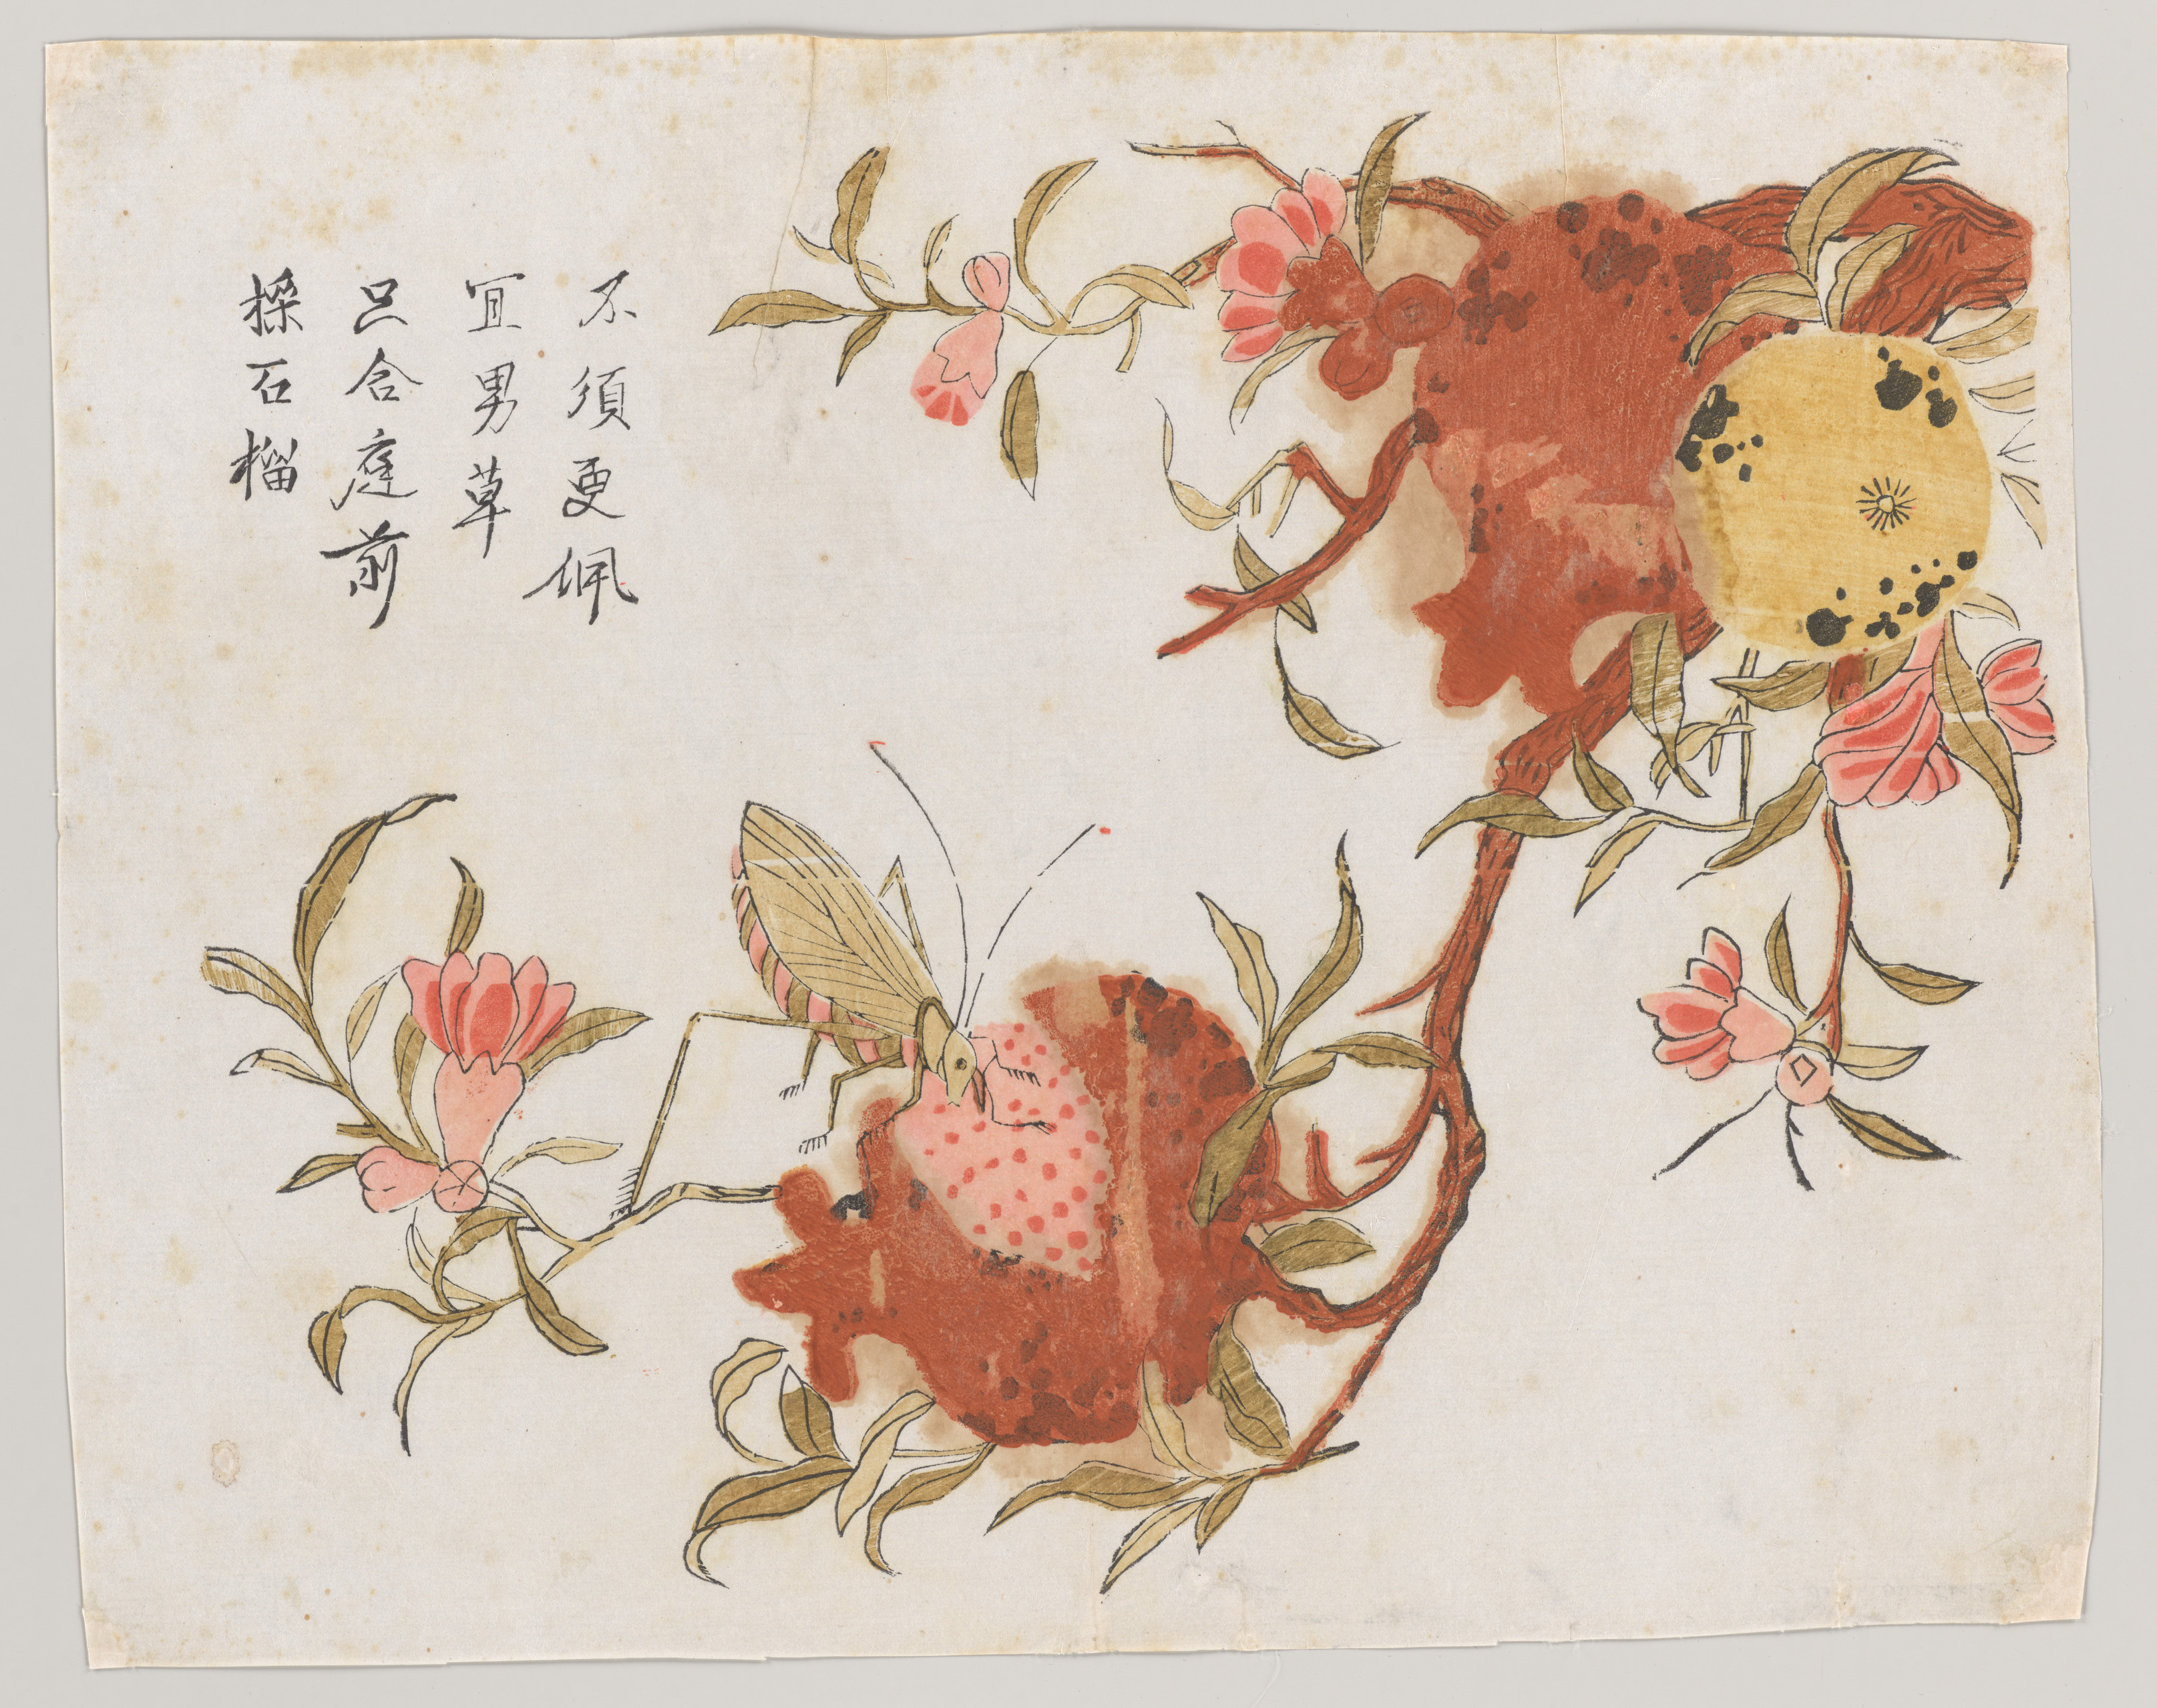 不須更佩
宜男草
只合庭前
採石榴